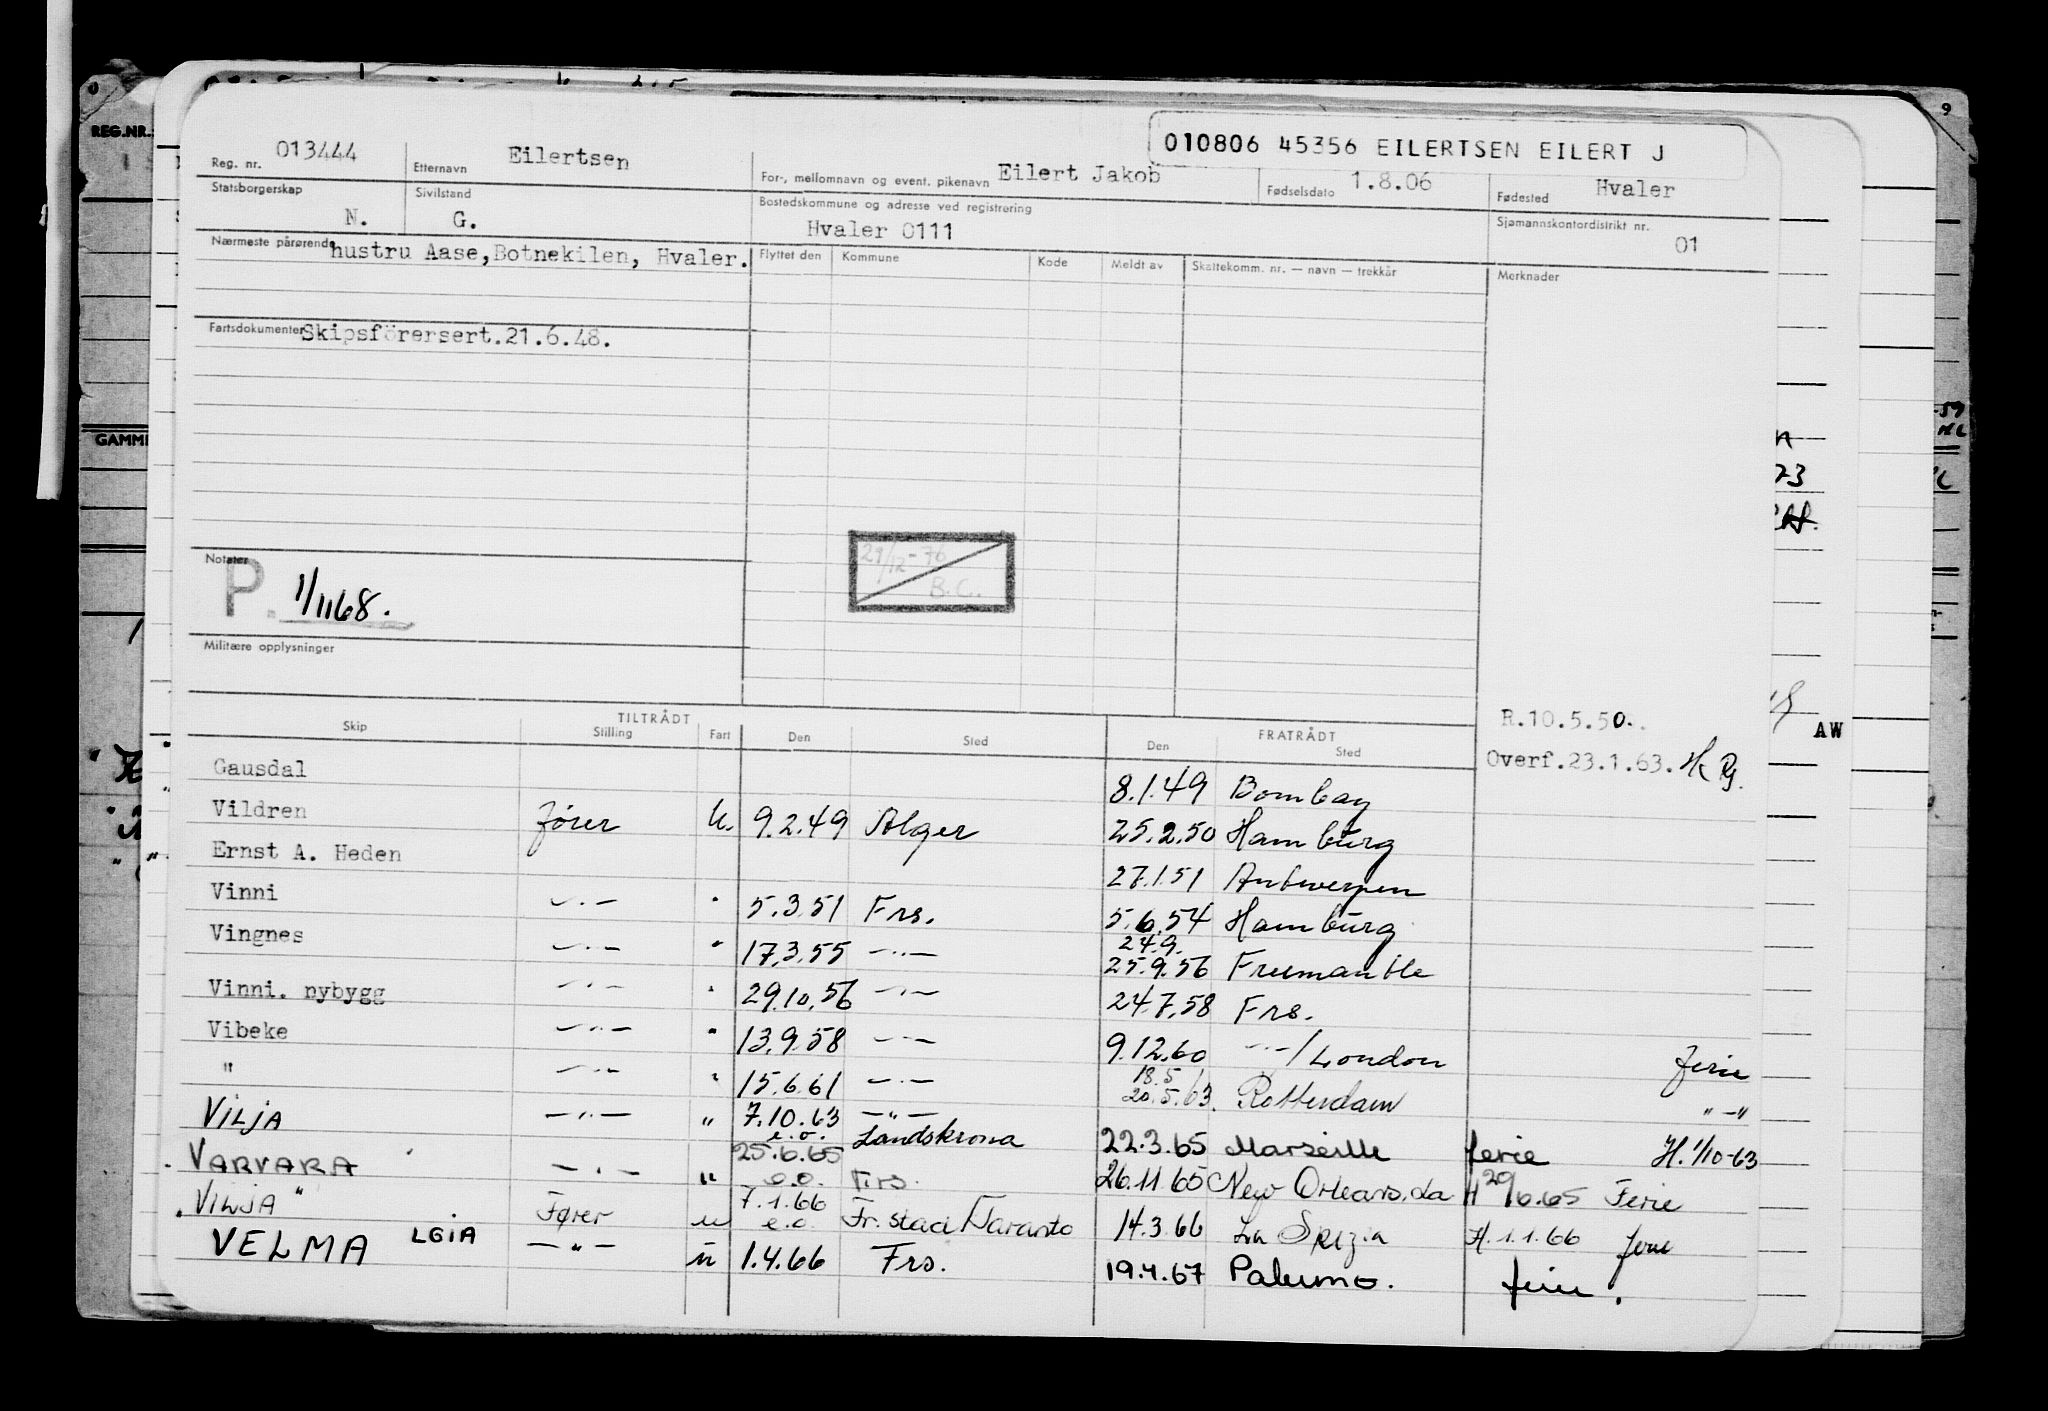 REG.NR.
9
010806 45356 EILERTSEN EILERT J
Reg. nr. 013444 Etternavn Eilertsen For-, mellomnavn og event. pikenavn Eilert Jakob Fødselsdato 1.8.06 Fødested Hvaler
Statsborgerskap N. Sivilstand G. Bostedskommune og adresse ved registrering Hvaler 0111 Sjømannskontordistrikt nr. 01
Nærmeste pårørende hustru Aase,Botnekilen, Hvaler. Flyttet den Kommune Kode Meldt av Skattekomm. nr. — navn — trekkår Merknader
Fartsdokumenter Skipsförersert.21.6.48.
GAMM
73
29/12-76
B.C.
Notater
P. 1/1168.
Militære opplysninger
TILTRÅDT FRATRÅDT R.10.5.50.
Skip Stilling Fart Den Sted Den Sted Overf.23.1.63. AW
Gausdal 8.1.49 Bombay
Vildren fører u. 9.2.49 Alger 25.2.50 Hamburg
Ernst A. Heden 27.1.51 Antwerpen
Vinni —"— " 5.3.51 Frs. 5.6.54 Hamburg
Vingnes —"— " 17.3.55 —"— 24.9. 25.9.56 Fremantle
Vinni. nybygg —"— " 29.10.56 —"— 24.7.58 Frs.
Vibeke —"— " 13.9.58 —"— 9.12.60 —"—/London ferie
" —"— " 15.6.61 —"— 18.5 20.5.63. Rotterdam "—"
VILJA —"— " 7.10.63 e.o. —"— Landskrona 22.3.65 Marseille ferie H. 1/10-63
VARVARA —"— " 25.6.65 e.o. Frs. 26.11 65 New Orleans, La H 29/6.65 Ferie
VILJA " Fører u 7.1.66 e.o. Fr.stad/Taranto 14.3.66 La Spezia H.1.1.66 ferie
VELMA LGIA —"— u 1.4.66 Frs. 19.4.67 Palermo. ferie.